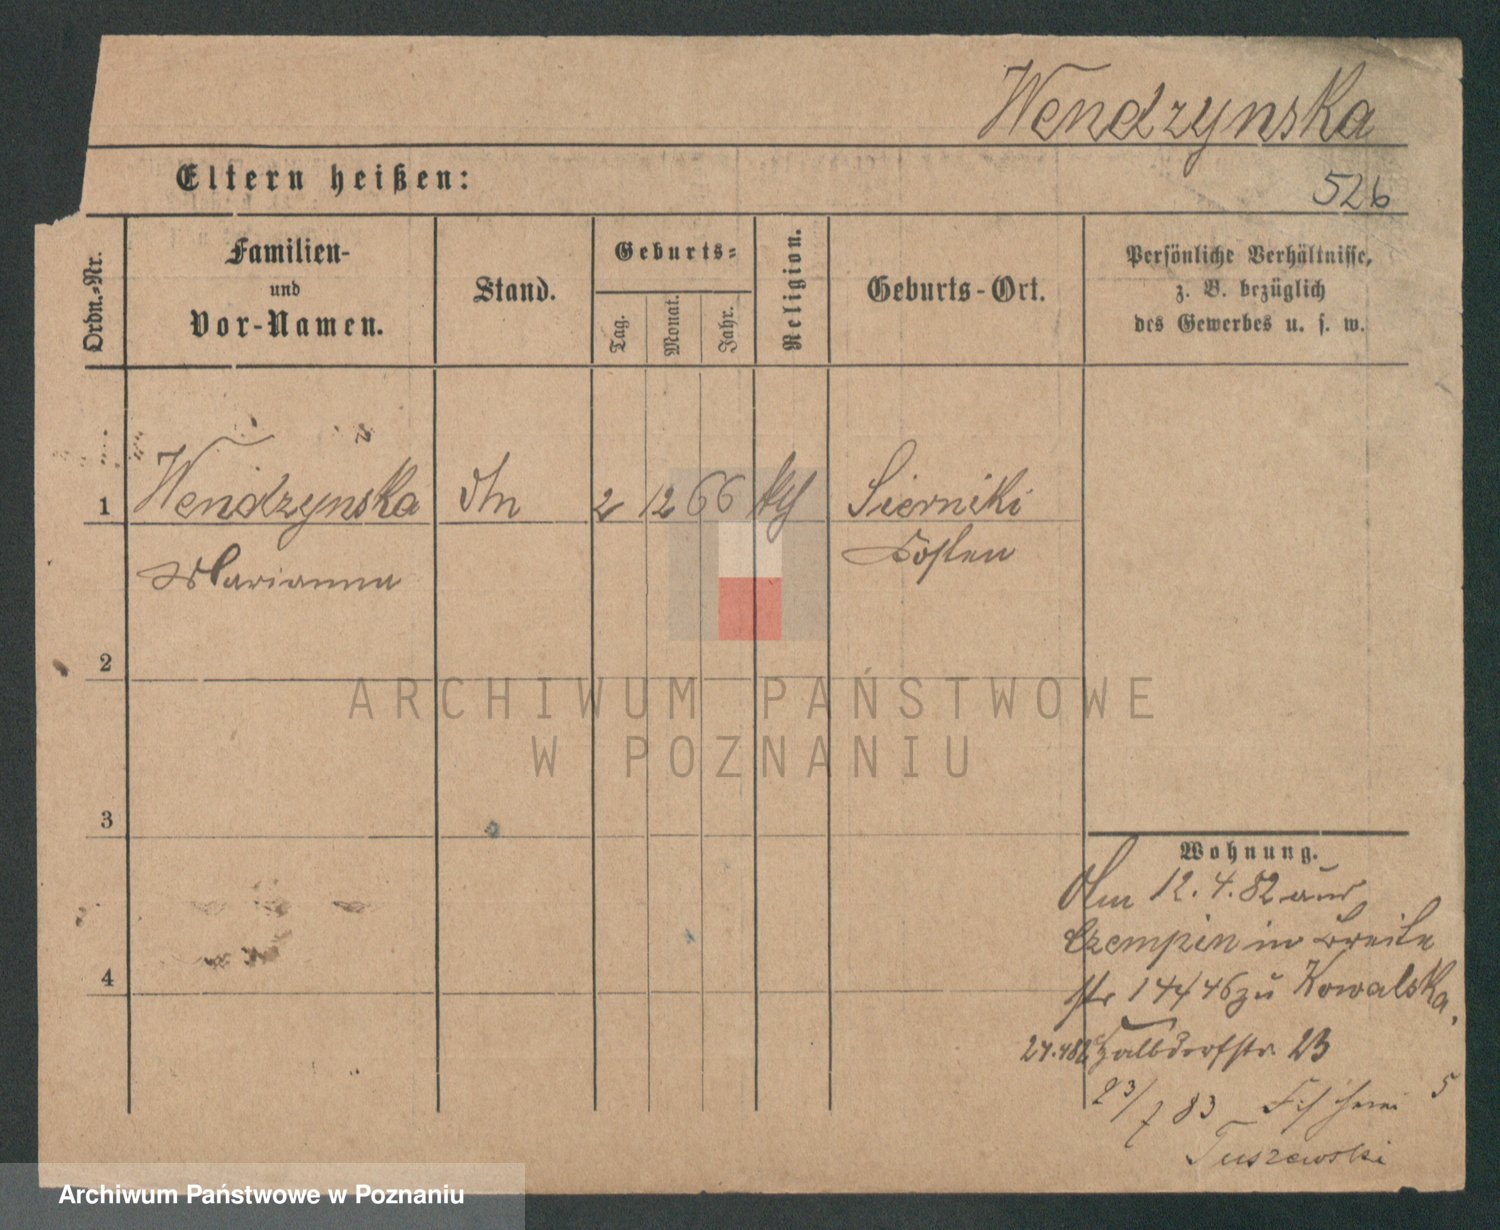 Wendzynska
Eltern heißen:
526
Ordn.-Nr.
Familien-
und
Vor-Namen.
Stand.
Geburts-
Tag.
Monat.
Jahr.
Religion.
Geburts-Ort.
Persönliche Verhältnisse,
z. B. bezüglich
des Gewerbes u. s. w.
1 Wendzynska 2 12 66 Sierniki
Marianna Kosten
2
3
4
Wohnung.
Am 12.4.82 aus
Czempin in Breite
str 14 zu Kowalska.
Halbdorfstr 23
23/7 83 Fischerei 5
Tuszewski
ARCHIWUM PAŃSTWOWE
W POZNANIU
Archiwum Państwowe w Poznaniu